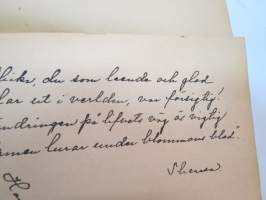 du som leende och glad
ut i verlden, var försigtig!
ndringen på lifvets väg är vigtig
rmen lurar under blommans blad".